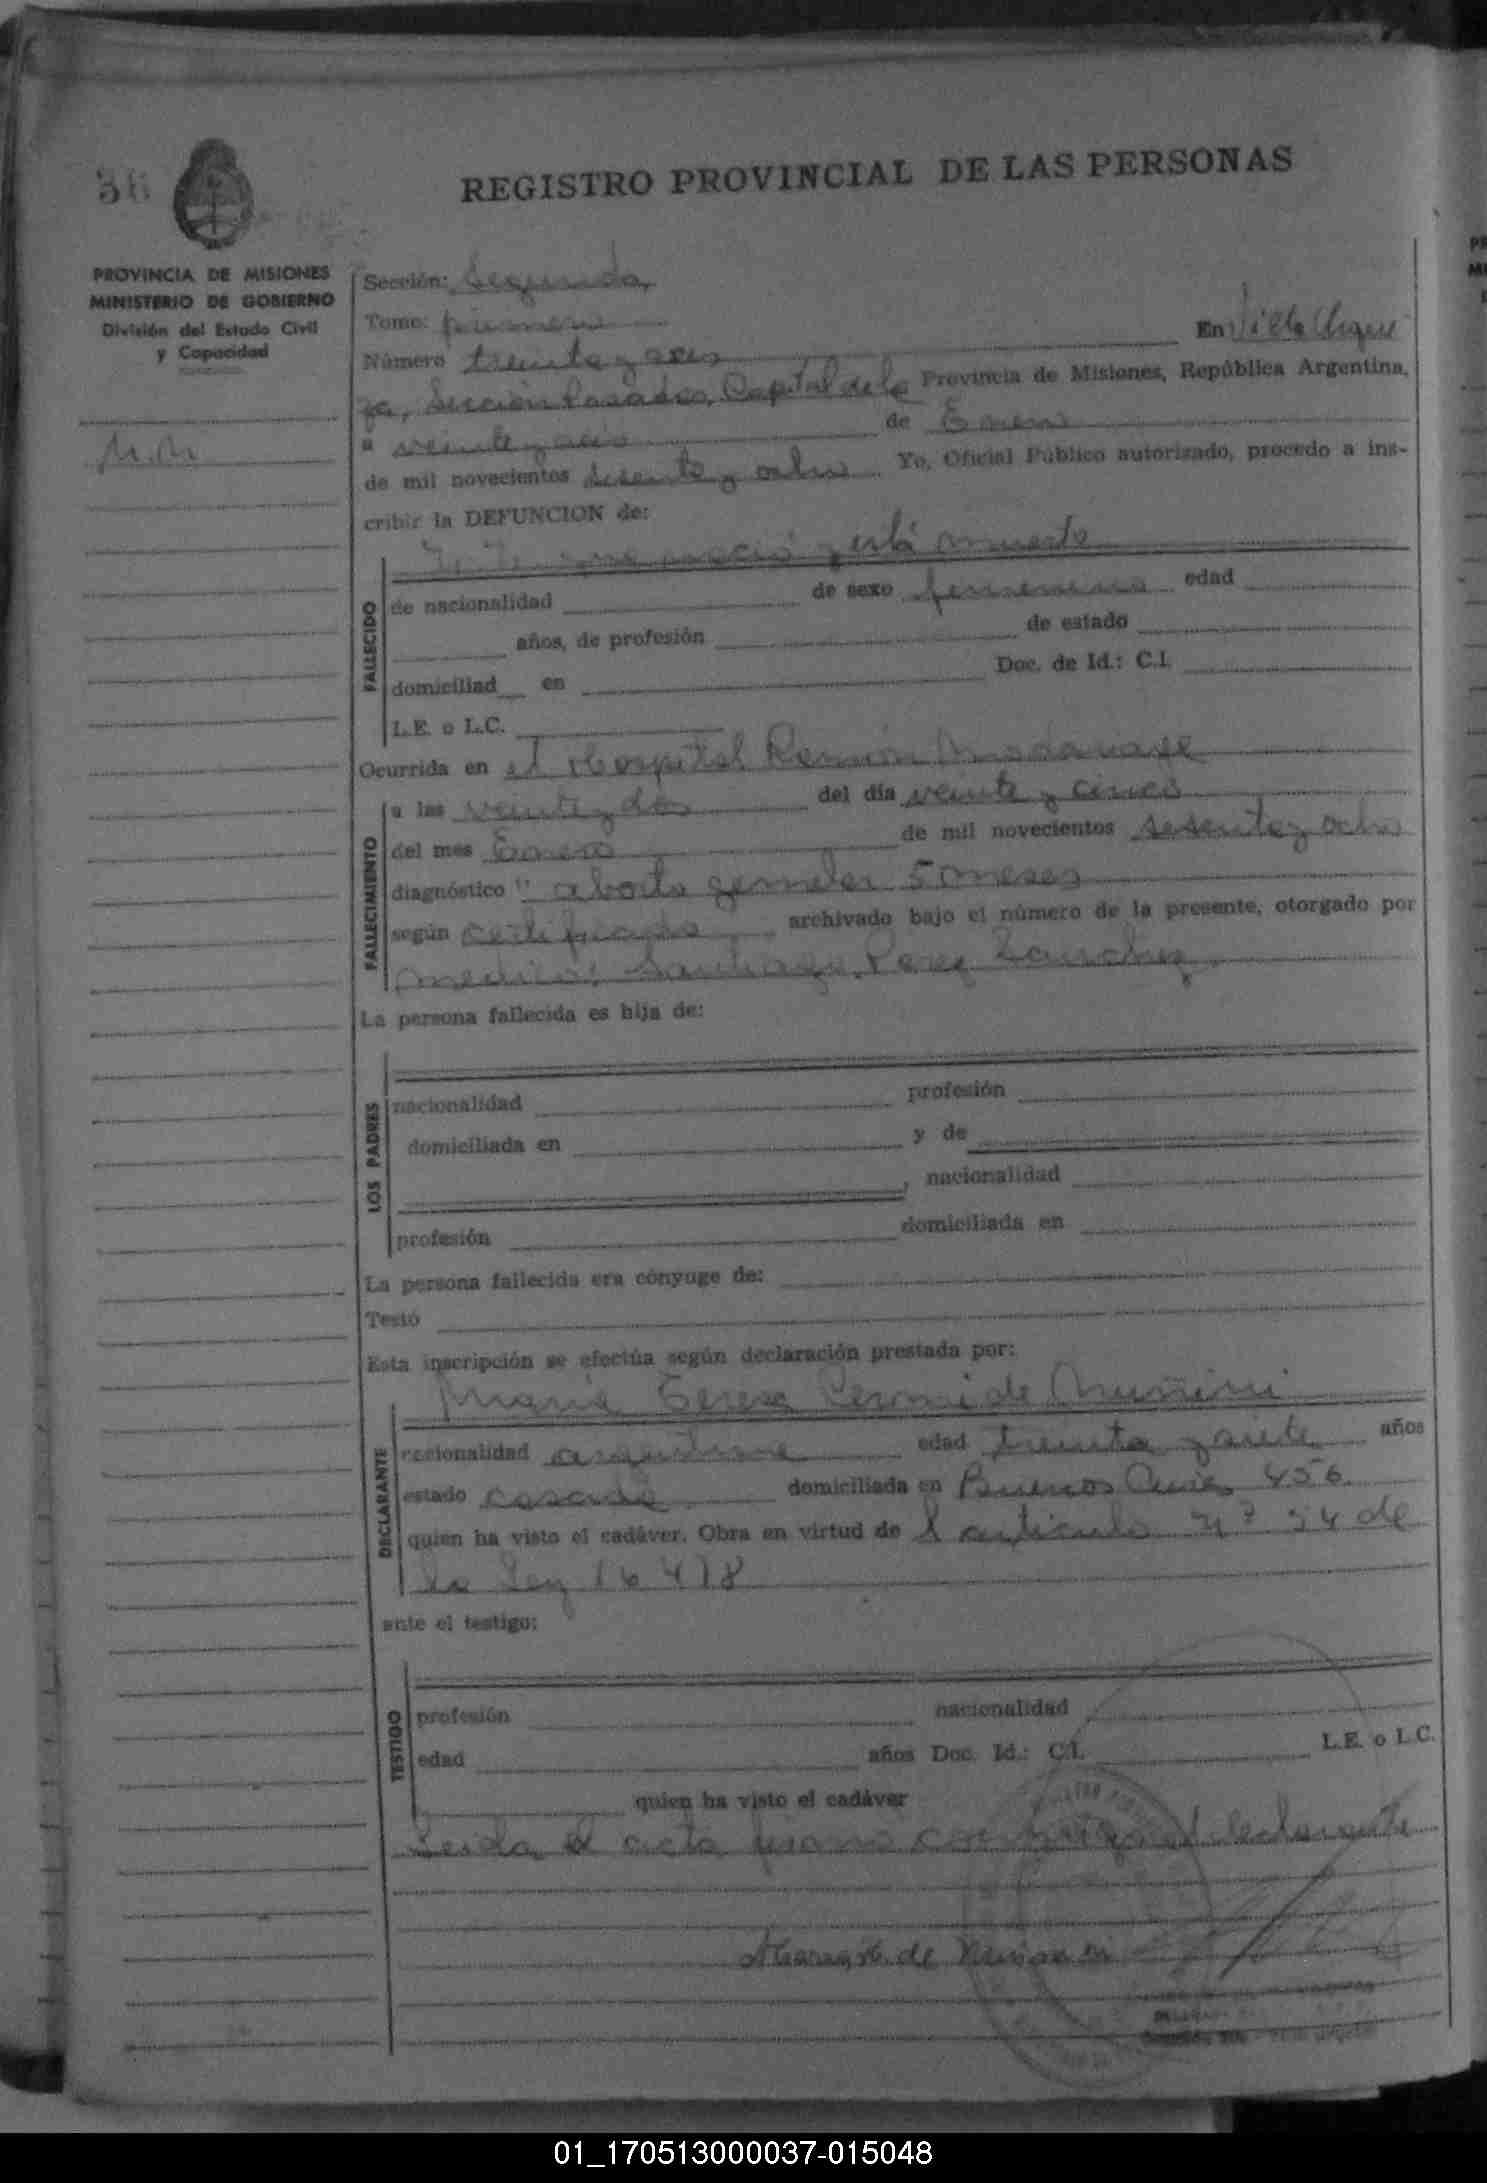 36
REGISTRO PROVINCIAL DE LAS PERSONAS
PROVINCIA DE MISIONES
MINISTERIO DE GOBIERNO
División del Estado Civil
y Capacidad
Sección: Segunda
Tomo: primero
En Villa Urqui
Número treinta y seis
za, Sección Posadas, Capital de la Provincia de Misiones, República Argentina,
a veinte y seis de Enero
de mil novecientos sesenta y ocho Yo, Oficial Público autorizado, procedo a ins-
cribir la DEFUNCION de:
N.N. que nació y está muerta
FALLECIDO
de nacionalidad de sexo femenino edad
años, de profesión de estado
domiciliad en Doc. de Id.: C.I.
L.E. o L.C.
Ocurrida en el Hospital Ramón Madariaga
FALLECIMIENTO
a las veinte y dos del día veinte y cinco
del mes Enero de mil novecientos sesenta y ocho
diagnóstico " aborto gemelar 5 meses
según certificado archivado bajo el número de la presente, otorgado por
medico: Santiago Perez Sanchez
La persona fallecida es hija de:
LOS PADRES
nacionalidad profesión
domiciliada en y de
, nacionalidad
profesión domiciliada en
La persona fallecida era cónyuge de:
Testó
Esta inscripción se efectúa según declaración prestada por:
María Teresa de
DECLARANTE
nacionalidad argentina edad treinta y siete años
estado casada domiciliada en Buenos Aires 456
quien ha visto el cadáver. Obra en virtud de l articulo Nº 54 de
la Ley 16478
ante el testigo:
TESTIGO
profesión nacionalidad
edad años Doc. Id.: C.I. L.E. o L.C.
quien ha visto el cadáver
Leida el acta firma conmigo el declarante
de
01_170513000037-015048